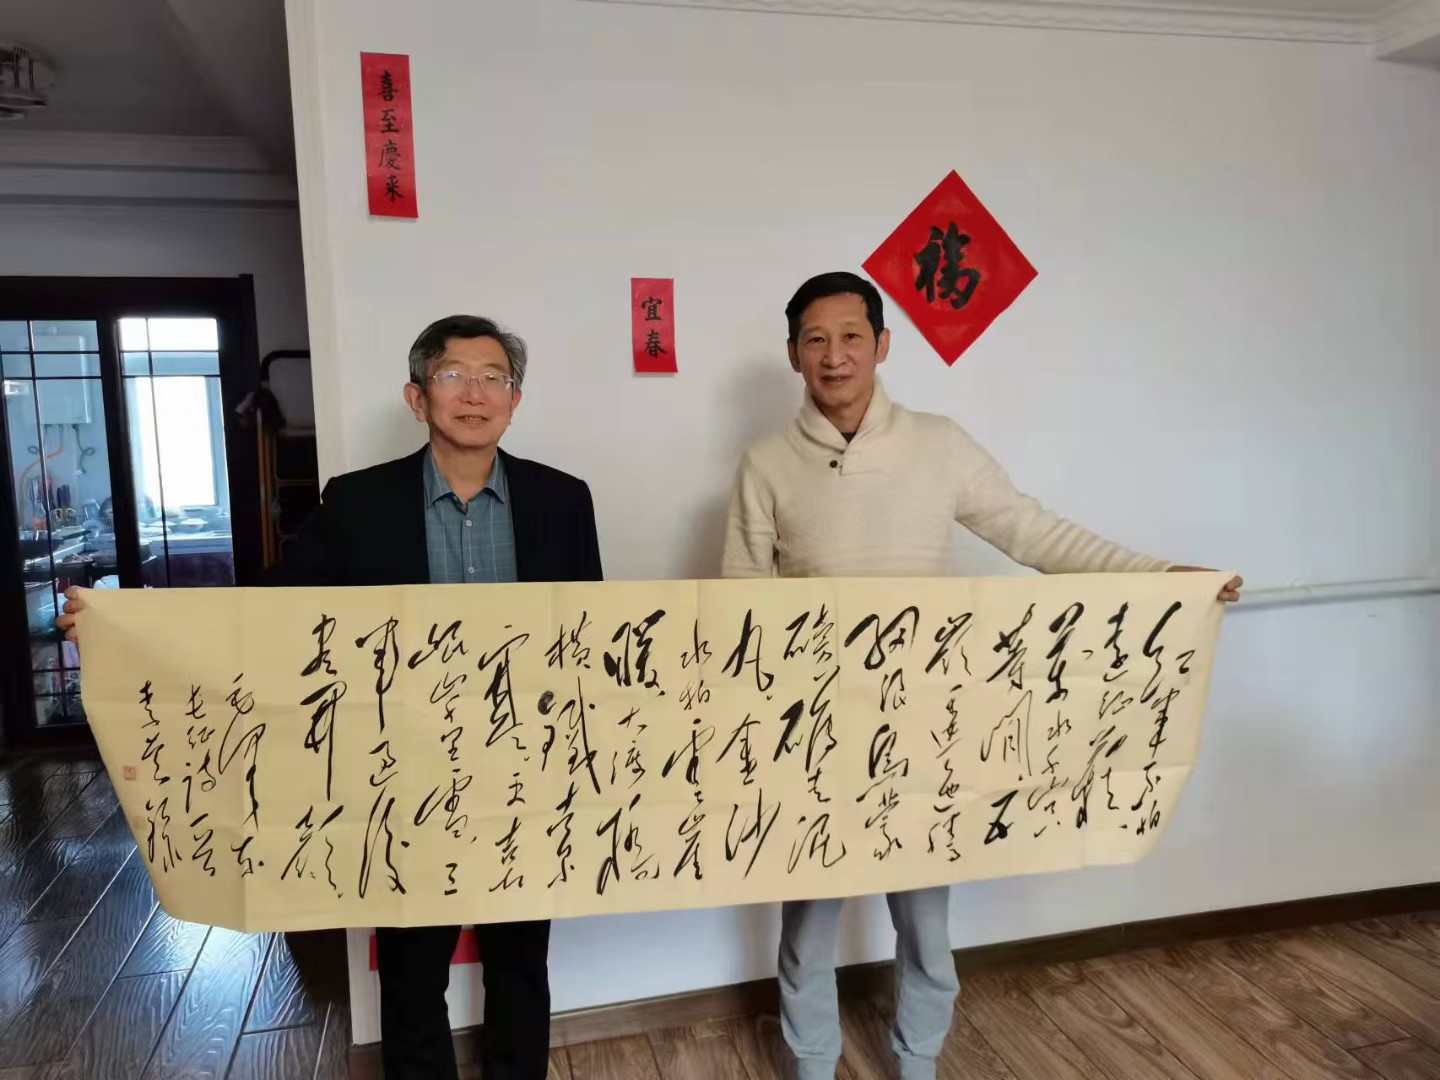 喜至慶来
宜春
福
红军不怕
远征难、
万水千山只
等闲、五
岭逶迤腾
细浪乌蒙
磅礴走泥
丸、金沙
水拍雲崖
暖、大渡桥
横鐵索
寒、更喜
岷山千里雪、三
军过後
尽開颜、
毛泽东
长征诗一首